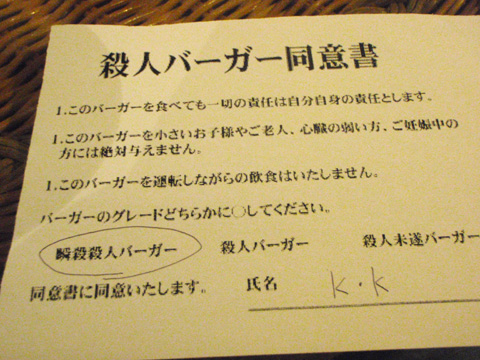 殺人バーガー同意書
1.このバーガーを食べても一切の責任は自分自身の責任とします。
1.このバーガーを小さいお子様やご老人、心臓の弱い方、ご妊娠中の
方には絶対与えません。
1.このバーガーを運転しながらの飲食はいたしません。
バーガーのグレードどちらかに○してください。
瞬殺殺人バーガー 殺人バーガー 殺人未遂バーガー
同意書に同意いたします。 氏名 K・K